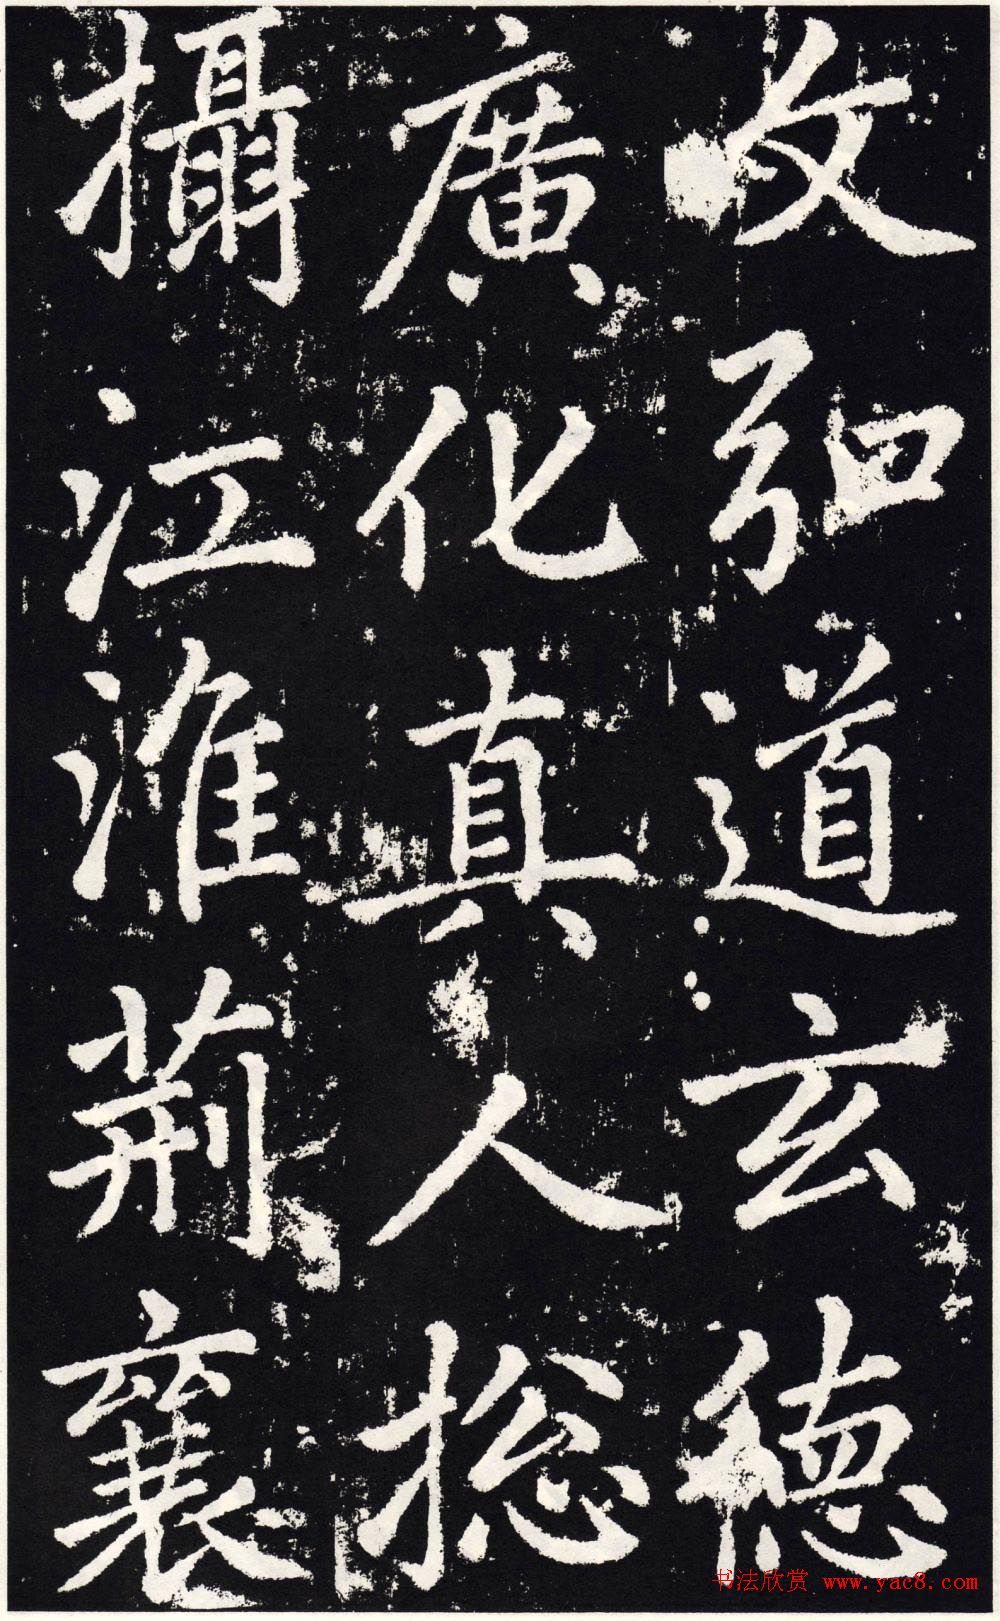 文弘道玄德
廣化真人捴
攝江淮荊襄
书法欣赏 www.yac8.com